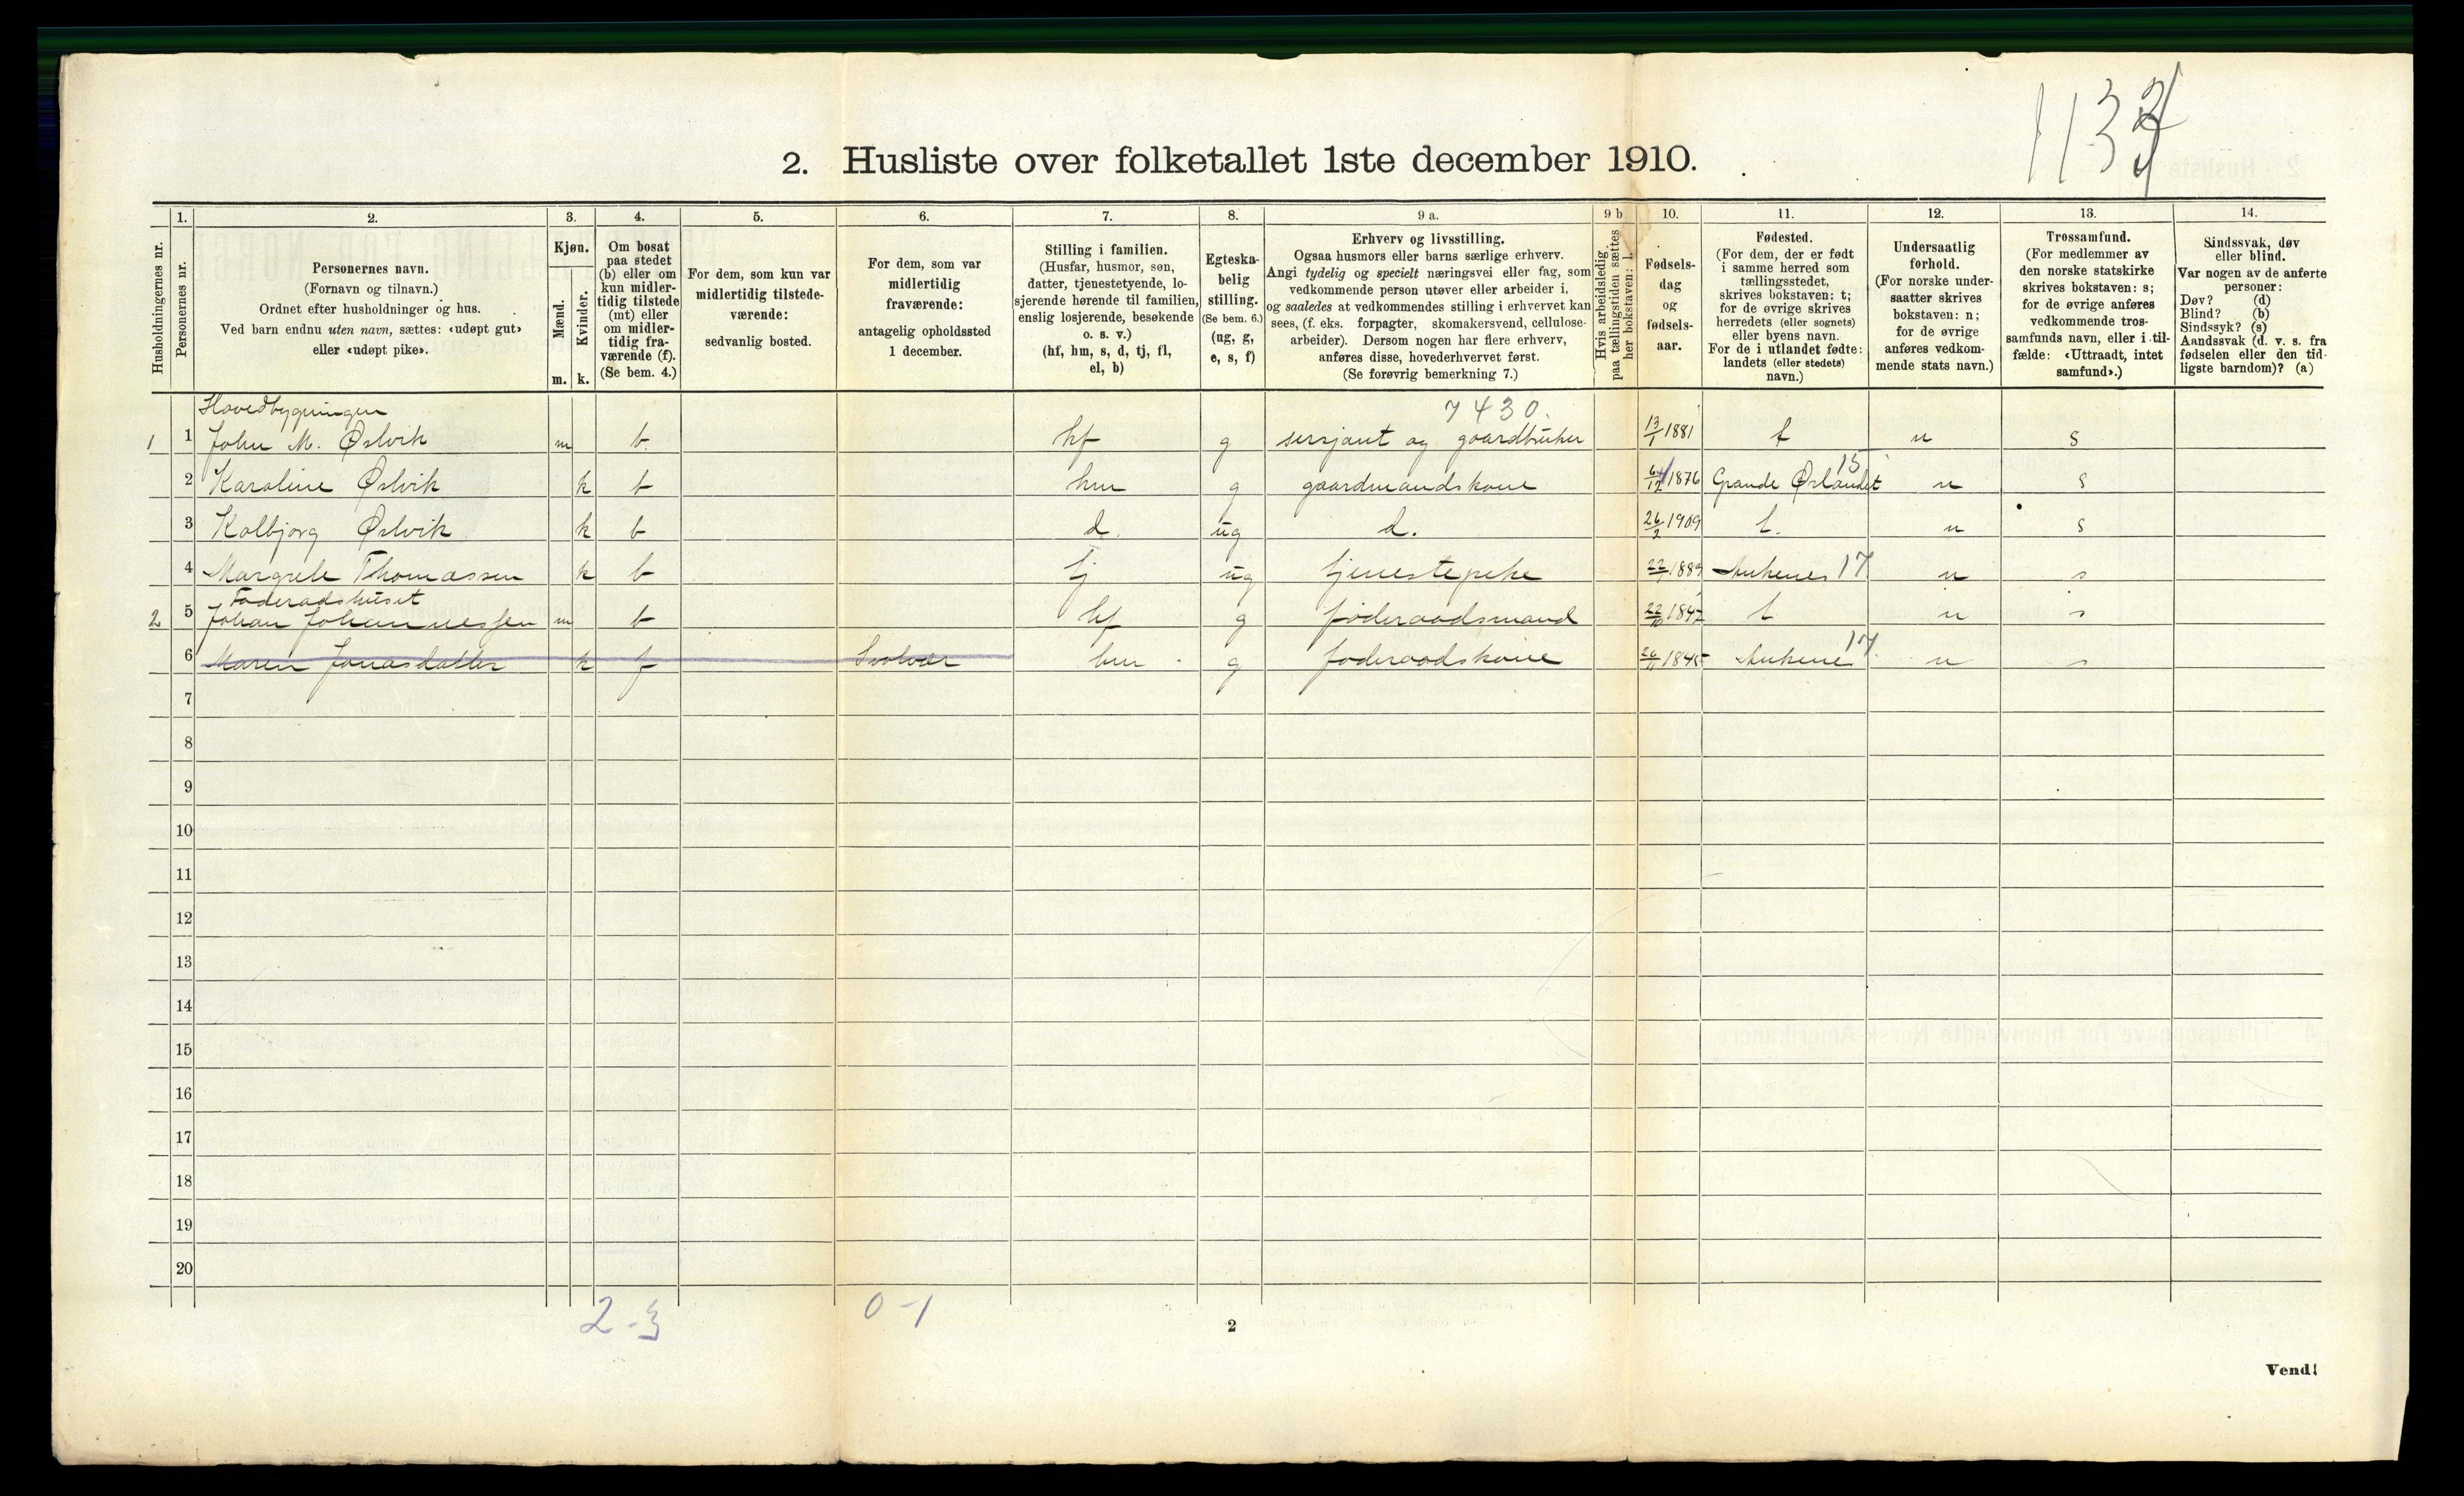 2. Husliste over folketallet 1ste december 1910.
Husholdningernes nr.
1.
Personernes nr.
2.
Personernes navn.
(Fornavn og tilnavn.)
Ordnet efter husholdninger og hus.
Ved barn endnu uten navn, sættes: «udøpt gut»
eller «udøpt pike».
3.
Kjøn.
Mænd.
Kvinder.
m. k.
4.
Om bosat
paa stedet
(b) eller om
kun midler-
tidig tilstede
(mt) eller
om midler-
tidig fra-
værende (f).
(Se bem. 4.)
5.
For dem, som kun var
midlertidig tilstede-
værende:
sedvanlig bosted.
6.
For dem, som var
midlertidig
fraværende:
antagelig opholdssted
1 december.
7.
Stilling i familien.
(Husfar, husmor, søn,
datter, tjenestetyende, lo-
sjerende hørende til familien,
enslig losjerende, besøkende
o. s. v.)
(hf, hm, s, d, tj, fl,
el, b)
8.
Egteska-
belig
stilling.
(Se bem. 6.)
(ug, g,
e, s, f)
9 a.
Erhverv og livsstilling.
Ogsaa husmors eller barns særlige erhverv.
Angi tydelig og specielt næringsvei eller fag, som
vedkommende person utøver eller arbeider i,
og saaledes at vedkommendes stilling i erhvervet kan
sees, (f. eks. forpagter, skomakersvend, cellulose-
arbeider). Dersom nogen har flere erhverv,
anføres disse, hovederhvervet først.
(Se forøvrig bemerkning 7.)
9 b
Hvis arbeidsledig
paa tællingstiden sættes
her bokstaven: l.
10.
Fødsels-
dag
og
fødsels-
aar.
11.
Fødested.
(For dem, der er født
i samme herred som
tællingsstedet,
skrives bokstaven: t;
for de øvrige skrives
herredets (eller sognets)
eller byens navn.
For de i utlandet fødte:
landets (eller stedets)
navn.)
12.
Undersaatlig
forhold.
(For norske under-
saatter skrives
bokstaven: n;
for de øvrige
anføres vedkom-
mende stats navn.)
13.
Trossamfund.
(For medlemmer av
den norske statskirke
skrives bokstaven: s;
for de øvrige anføres
vedkommende tros-
samfunds navn, eller i til-
fælde: «Uttraadt, intet
samfund».)
14.
Sindssvak, døv
eller blind.
Var nogen av de anførte
personer:
Døv? (d)
Blind? (b)
Sindssyk? (s)
Aandssvak (d. v. s. fra
fødselen eller den tid-
ligste barndom)? (a)
Hovedbygningen 7430.
1 1 John M. Øslvik m b. hf g sersjant og gaardbruker 13/1 1881 t n s
2 Karoline Øslvik k b hm g gaardmandskone 6/12 1876 Grande Ørlandet 15 n s
3 Kolbjorg Øslvik k b d. ug d. 26/2 1909 t. n s
4 Margrete Thomassen k b tj ug tjenestepike 1889 Ankenes 17 n s
Foderadshuset
2 5 Johan Johannessen m b hf g føderaadsmand 22/10 184 t n s
6 Maren Jonasdatter k f Svolvær hm g foderaadskone 26/11 1845 Ankenes 17. n s
7
8
9
10
11
12
13
14
15
16
17
18
19
20
2-3 0-1
2
Vend!